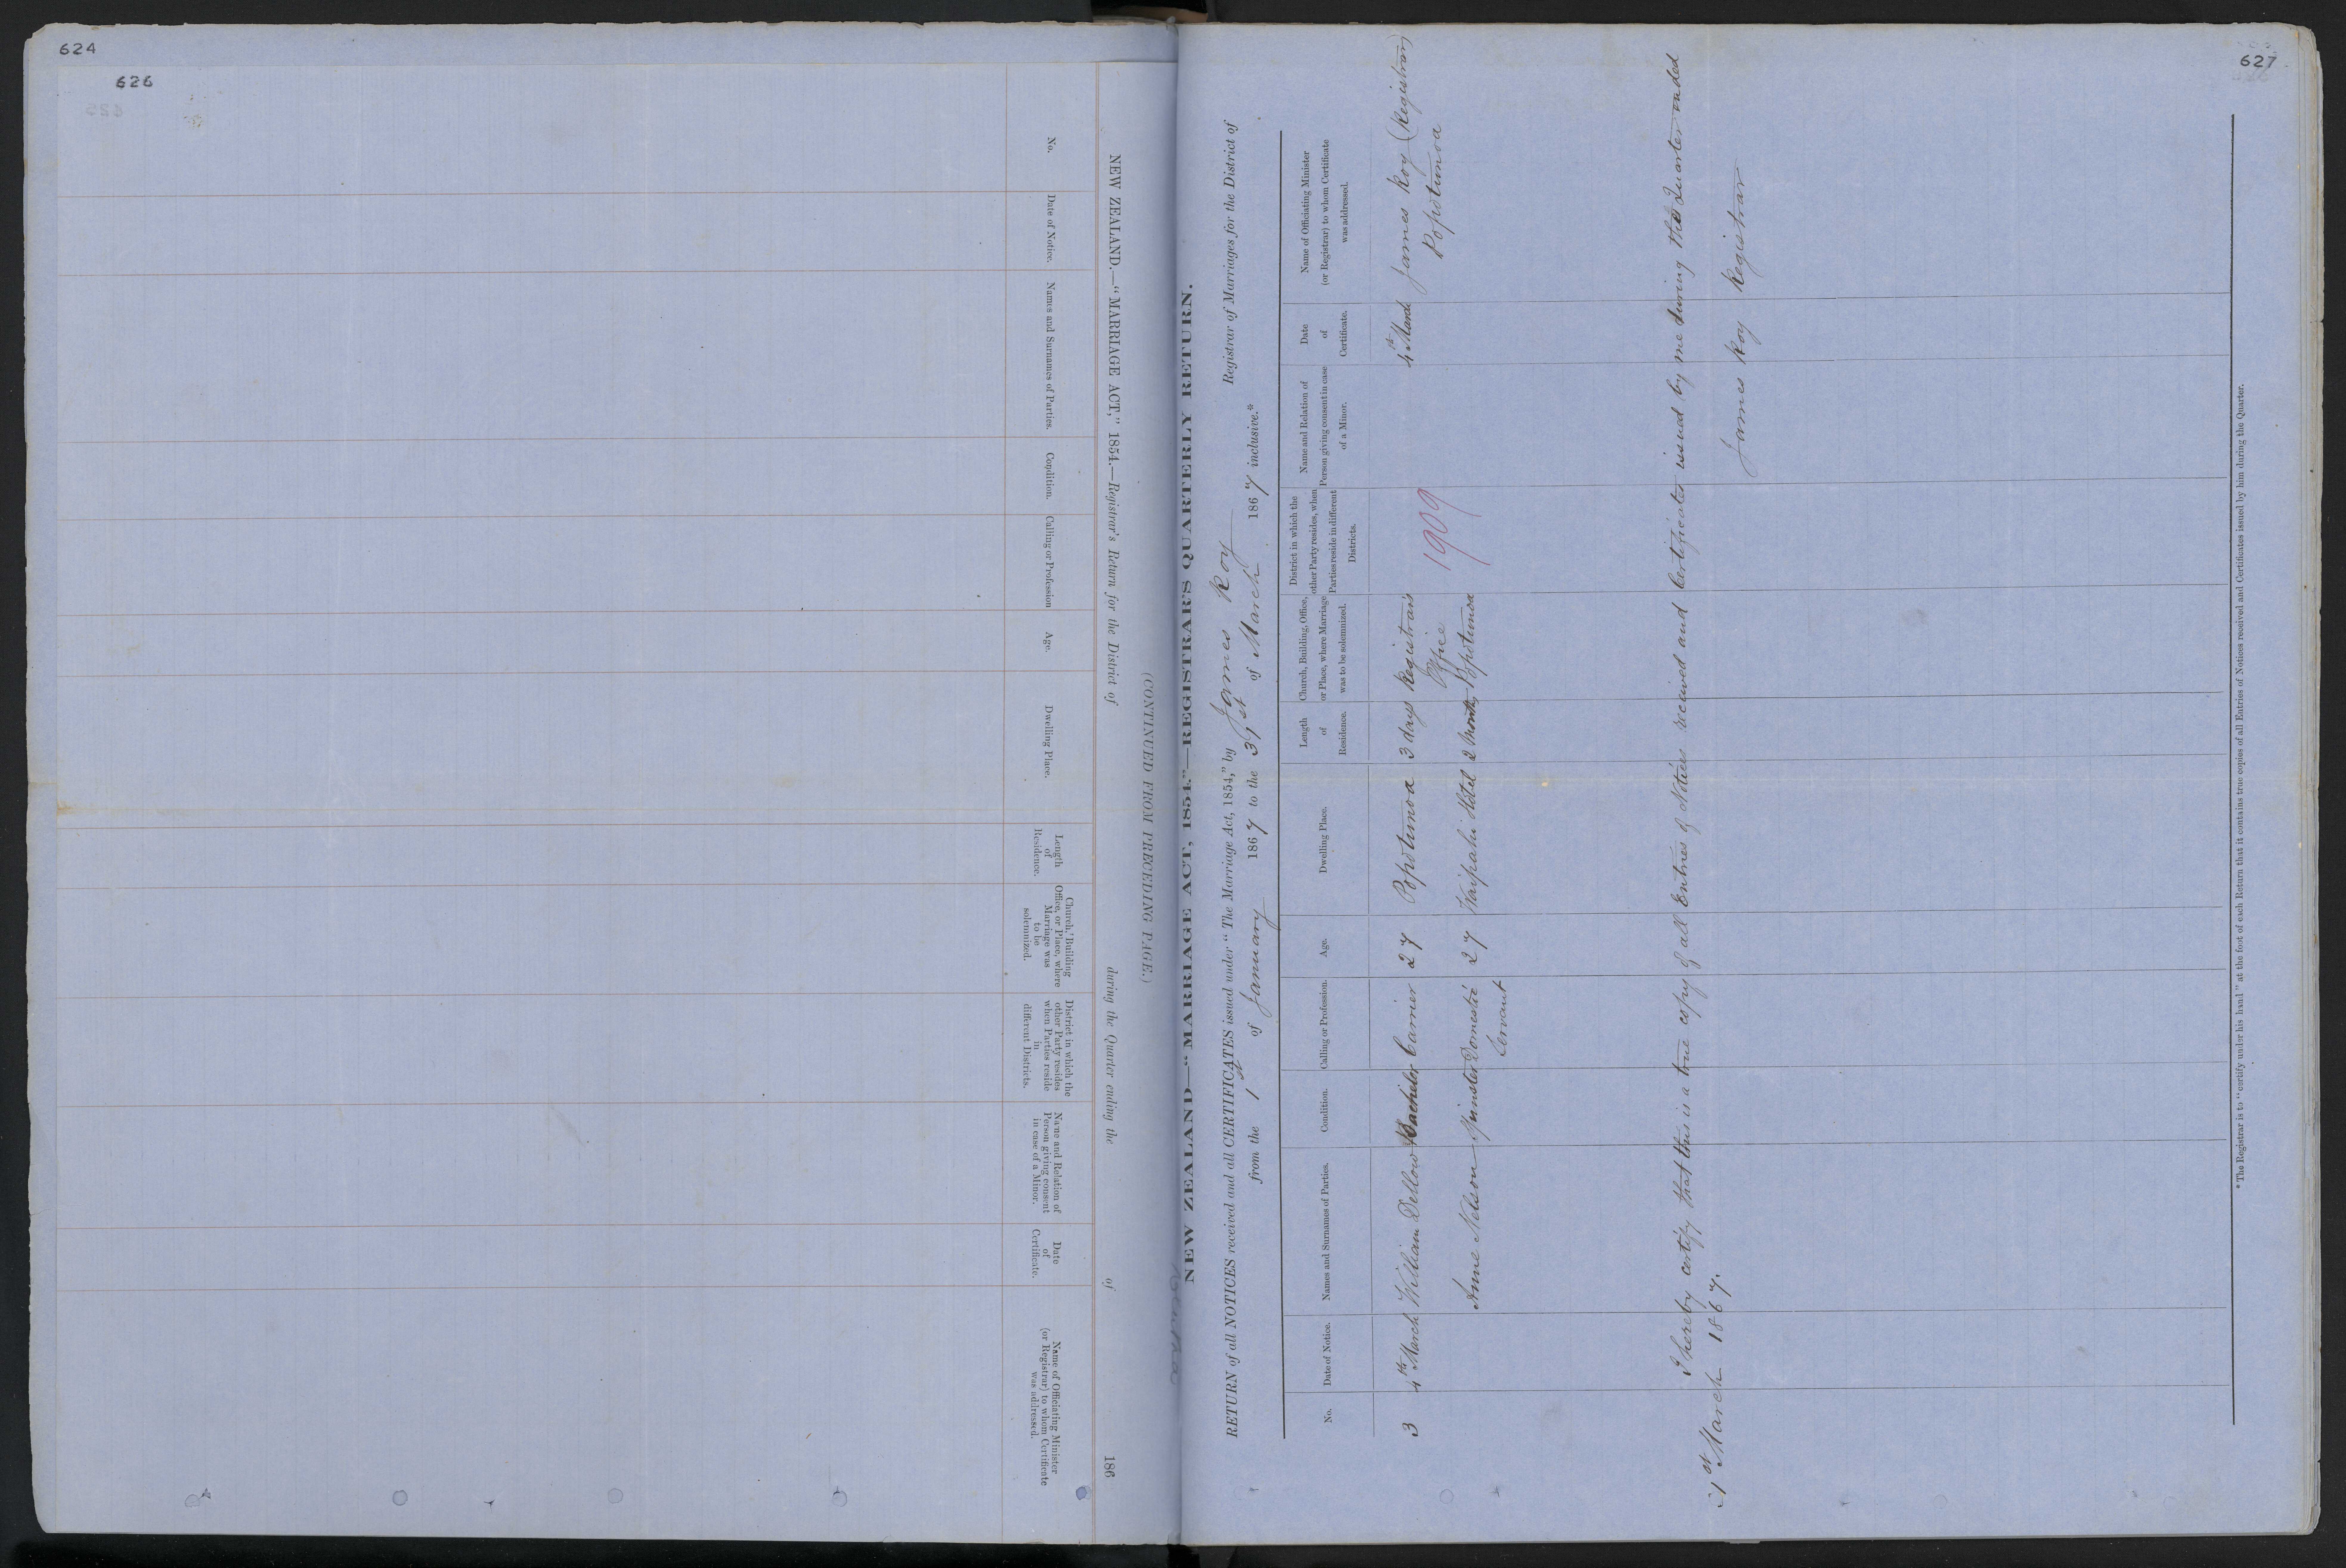 624
626
NEW ZEALAND.—“MARRIAGE ACT,” 1854.—Registrar's Return for the District of during the Quarter ending the of 186
No.
Date of Notice.
Names and Surnames of Parties.
Condition.
Calling or Profession
Age.
Dwelling Place.
Length
of
Residence.
Church, Building
Office, or Place, where
Marriage was
to be
solemnized.
District in which the
other Party resides
when Parties reside
in
different Districts.
Name and Relation of
Person giving consent
in case of a Minor.
Date
of
Certificate.
Name of Officiating Minister
(or Registrar) to whom Certificate
was addressed.
(CONTINUED FROM PRECEDING PAGE.)
627
NEW ZEALAND—“MARRIAGE ACT, 1854.”—REGISTRAR'S QUARTERLY RETURN.
RETURN of all NOTICES received and all CERTIFICATES issued under “The Marriage Act, 1854,” by James Roy Registrar of Marriages for the District of
from the 1st of January 1867 to the 31st of March 1867 inclusive.*
No.
Date of Notice.
Names and Surnames of Parties.
Condition.
Calling or Profession.
Age.
Dwelling Place.
Length
of
Residence.
Church, Building, Office,
or Place, where Marriage
was to be solemnized.
District in which the
other Party resides, when
Parties reside in different
Districts.
Name and Relation of
Person giving consent in case
of a Minor.
Date
of
Certificate.
Name of Officiating Minister
(or Registrar) to whom Certificate
was addressed.
3 4th March William Dellow Bachelor Carrier 27 Popotunoa 3 days Registrars 4th March James Roy (Registrar)
Office 1909 Popotunoa
Anne Nelson Spinster Domestic 27 Waipahi Hotel 2 Months Popotunoa
Servant
I hereby certify that this is a true copy of all Entries of Notices received and Certificates issued by me during the Quarter ended
31st March 1867. James Roy Registrar
* The Registrar is to “certify under his hand” at the foot of each Return that it contains true copies of all Entries of Notices received and Certificates issued by him during the Quarter.